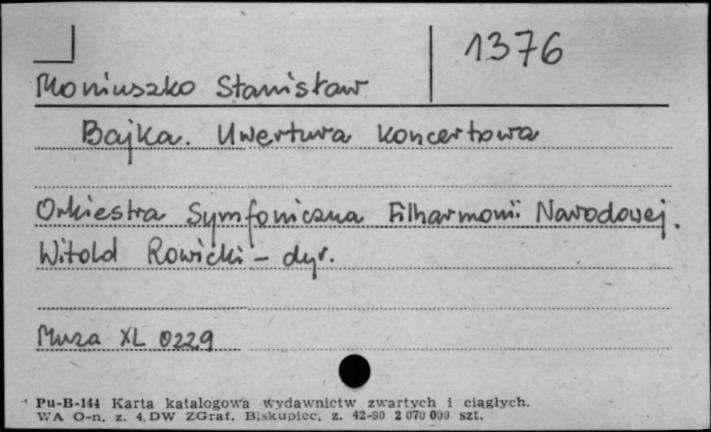 1376
Moniuszko Stanisław
Bajka. Uwertura koncertowa
Orkiestra Symfoniczna Filharmonii Narodowej.
Witold Rowicki – dyr.
Muza XL 0229
Pu-B-144 Karta katalogowa wydawnictw zwartych i ciągłych.
WA O-n, z. 4, DW ZGraf. Biskupiec, z. 42-80 2 070 000 szt.